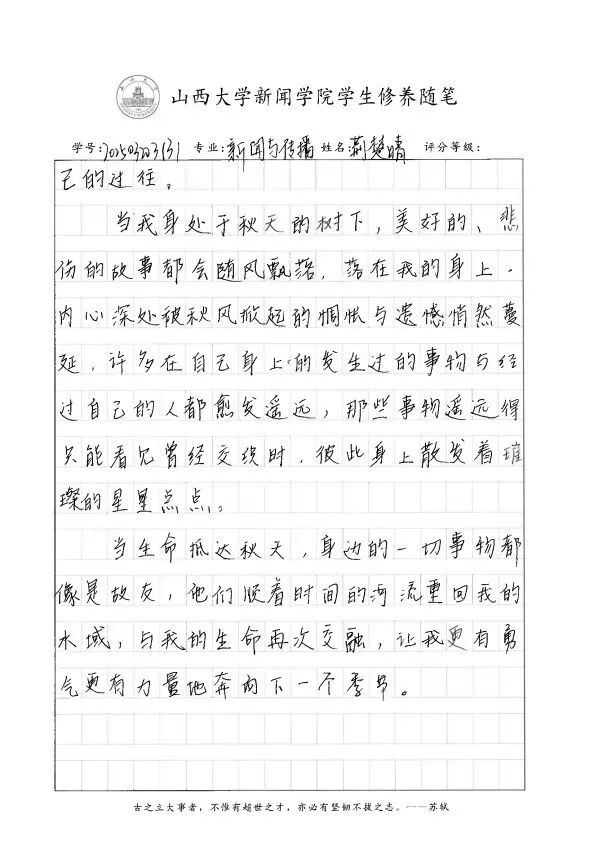 山西大学新闻学院学生修养随笔
学号: 202503203131 专业: 新闻与传播 姓名: 荆楚晴 评分等级:
己的过往。
当我身处于秋天的树下,美好的、悲
伤的故事都会随风飘落,落在我的身上。
内心深处被秋风掀起的惆怅与遗憾悄然蔓
延,许多在自己身上的发生过的事物与经
过自己的人都愈发遥远,那些事物遥远得
只能看见曾经交织时,彼此身上散发着璀
璨的星星点点。
当生命抵达秋天,身边的一切事物都
像是故友,他们顺着时间的河流重回我的
水域,与我的生命再次交融,让我更有勇
气更有力量地奔向下一个季节。
古之立大事者,不惟有超世之才,亦必有坚韧不拔之志。——苏轼